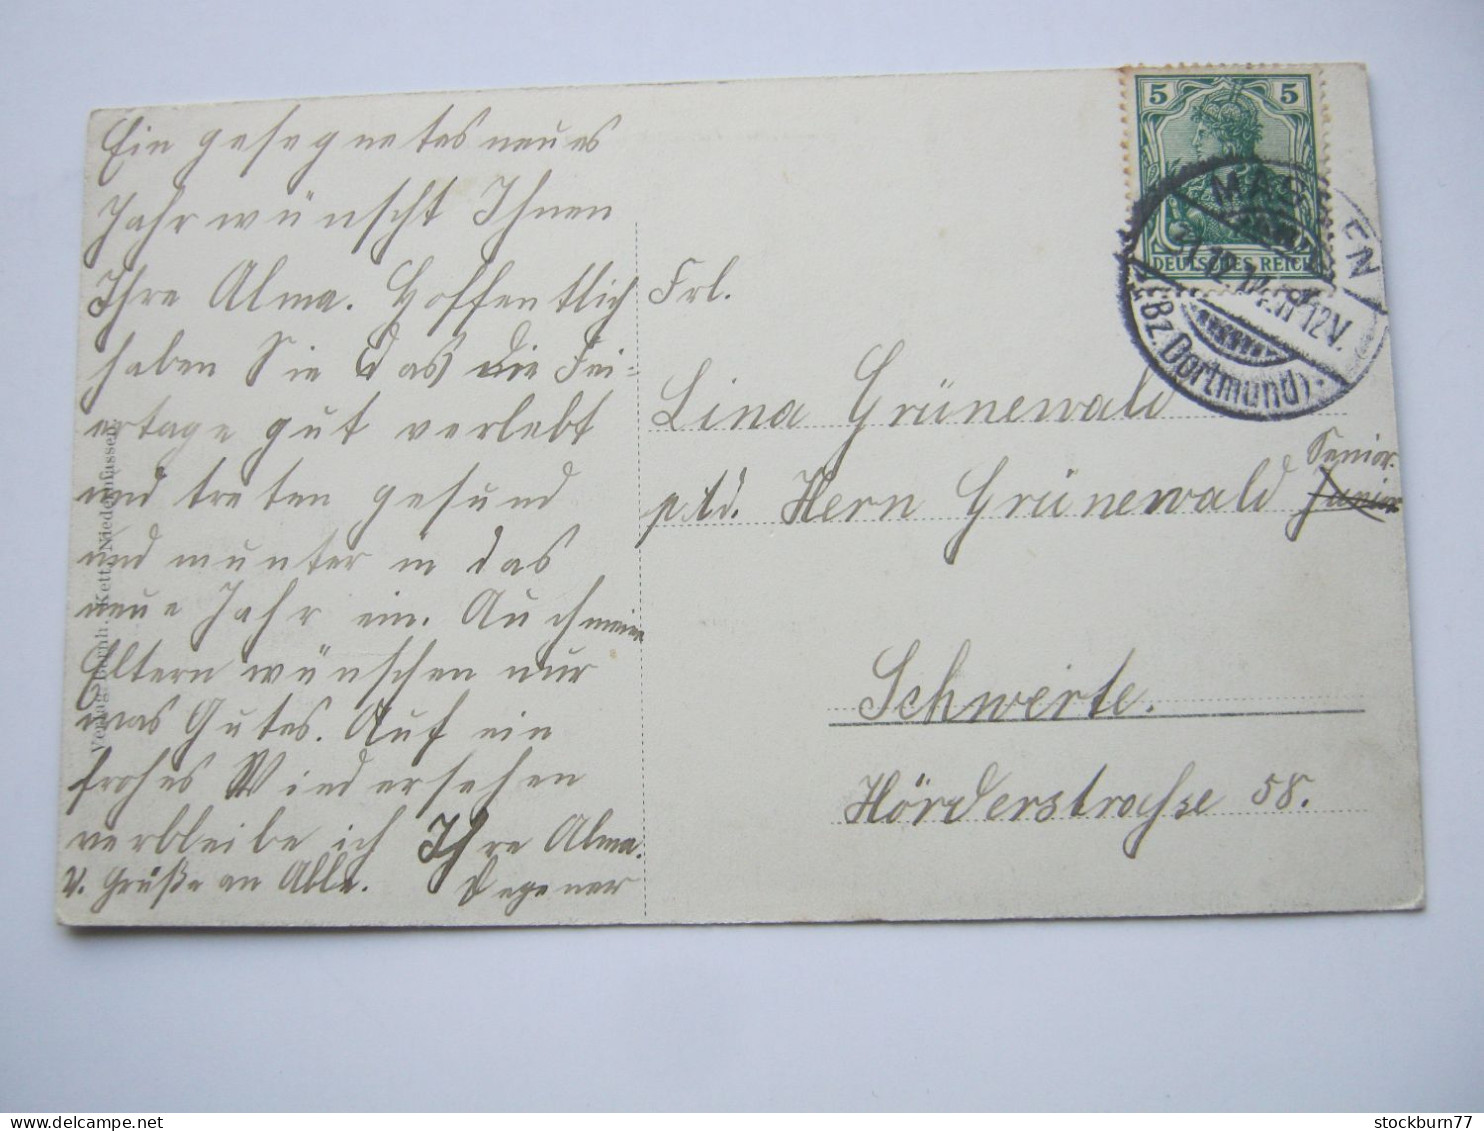 Ein gesegnetes neues
Jahr wünscht Ihnen
Ihre Alma. Hoffentlich
haben Sie das die Fei-
ertage gut verlebt
und treten gesund
und munter in das
neue Jahr ein. Auch meine
Eltern wünschen nur
was Gutes. Auf ein
frohes Wiedersehen
verbleibe ich Ihre Alma
Degener
V. Grüße an Alle.
Verlag: Bernh. Kett, Niedermassen
5 5
DEUTSCHES REICH
MASSEN
31.12.14. 11-12V.
(Bz. Dortmund)
Frl.
Lina Grünewald
ptd. Hern Grünewald Senior.
Junior
Schwerte.
Hörderstrasse 58.
stockburn77